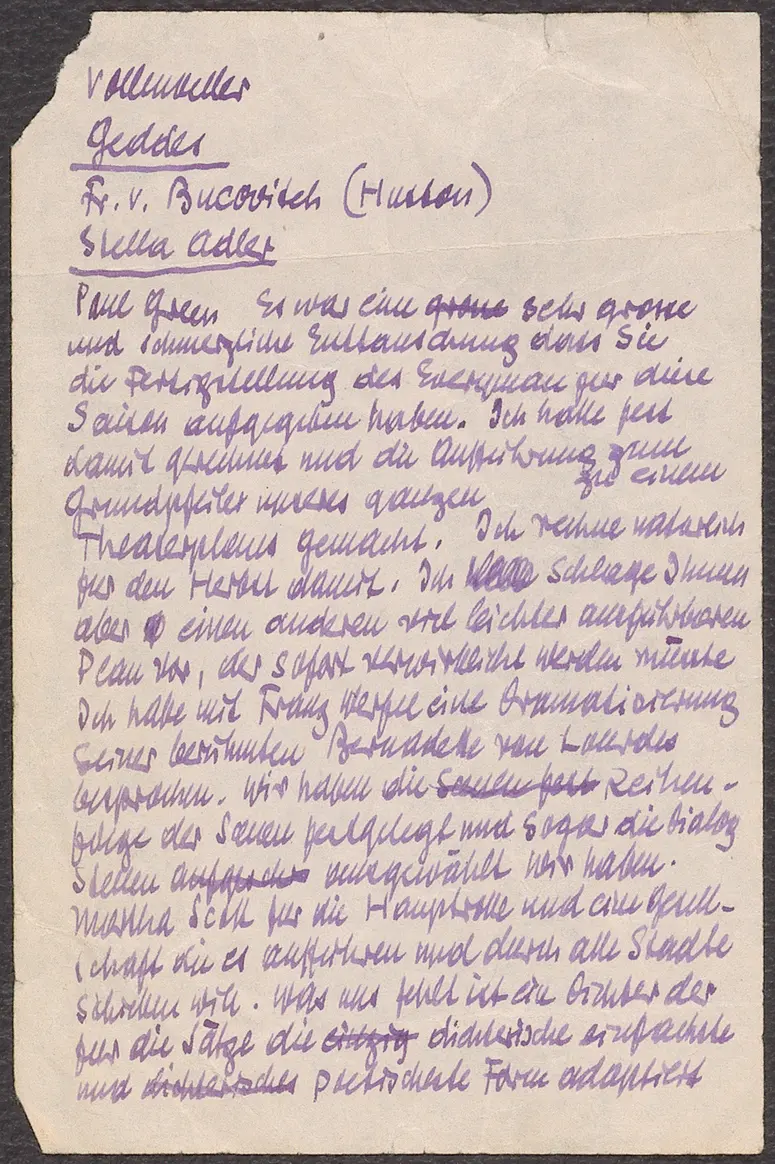 Vollmoeller
Geddes
Fr. v. Bucovitch (Huston)
Stella Adler
Paul Green Es war eine grosse sehr grosse
und schmerzliche Enttäuschung dass Sie
die Fertigstellung des Everyman für diese
Saison aufgegeben haben. Ich hatte fest
damit gerechnet und die Aufführung zum
zu einem
Grundpfeiler unseres ganzen
Theaterplans gemacht. Ich rechne natürlich
für den Herbst damit. Ich schlage Ihnen
aber einen anderen viel leichter ausführbaren
Plan vor, der sofort verwirklicht werden müsste
Ich habe mit Franz Werfel eine Dramatisierung
seiner berühmten Bernadette von Lourdes
besprochen. Wir haben die Scenen fest Reihen-
folge der Scenen festgelegt und sogar die Dialog
Stellen ausgewählt wir haben.
Martha Scott für die Hauptrolle und eine Gesell-
schaft die es aufführen und durch alle Städte
schicken will. Was uns fehlt ist ein Dichter der
für die Sätze die einzig dichterische einfachste
und dichterisches poetischeste Form adaptiert